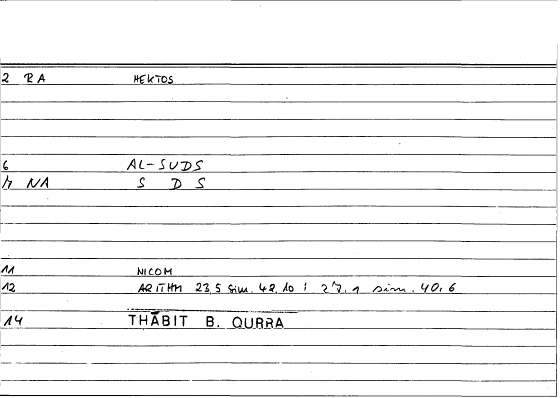 2 RA HEKTOS
6 AL-SUDS
7 NA S D S
11 NICOM
12 ARITHM 23,5 sim. 42,10 ; 27,1 sim. 40,6
14 THĀBIT B. QURRA